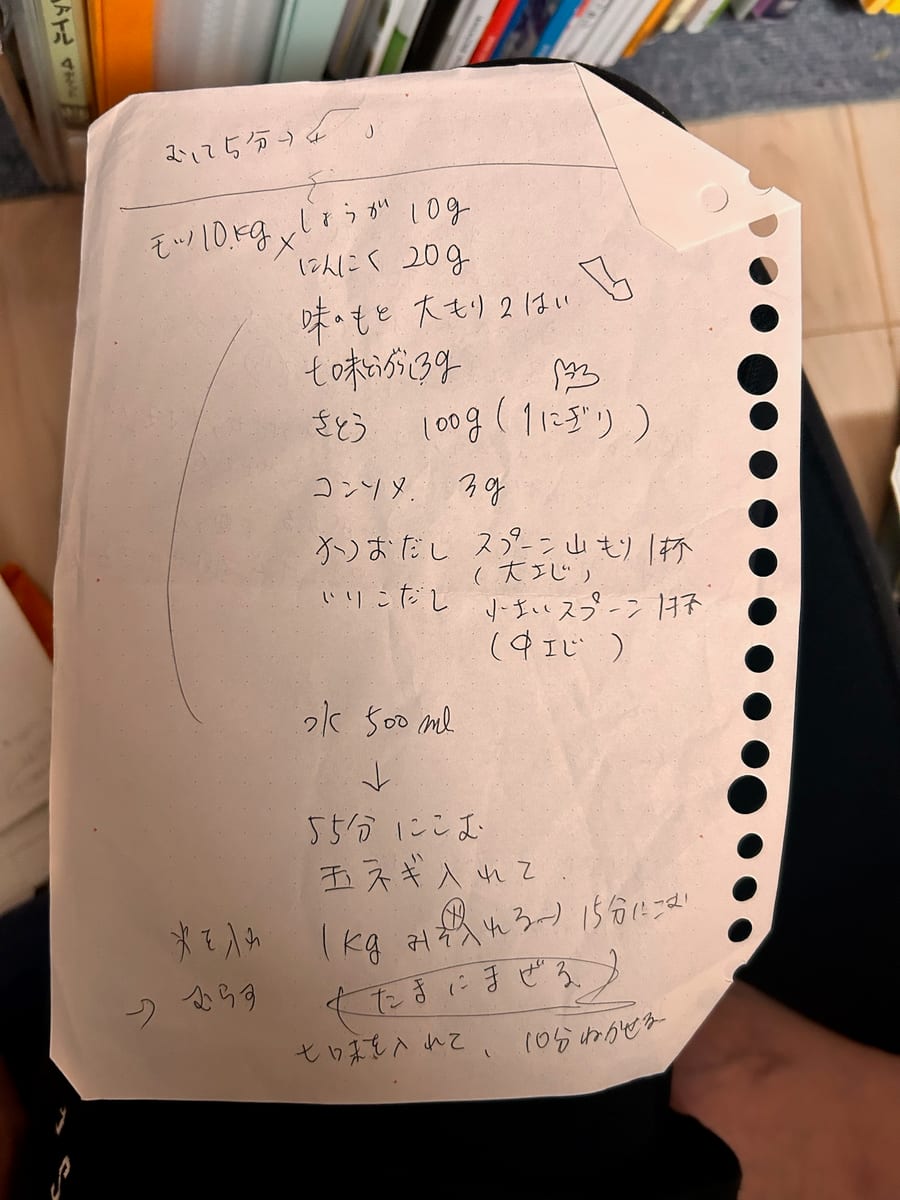 ファイル 4
むして5分→
モツ10.kg × しょうが 10g
にんにく 20g
味のもと 大もり2はい
七味とうがらし3g
さとう 100g(1にぎり)
コンソメ. 3g
かつおだし スプーン山もり1杯
(大エビ)
いりこだし 小さいスプーン1杯
(中エビ)
水 500ml
↓
55分 にこむ
玉ネギ入れて.
1kg みそ入れる→ 15分にこむ
火を入れ
(たまにまぜる)
→ むらす
七味を入れて、10分ねかせる